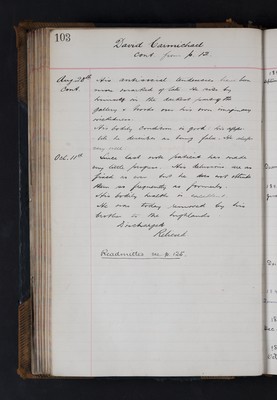 103
David Carmichael
Cont. from p. 12.
Aug 28th His antisocial tendencies have been
Cont. more marked of late. He sits by
himself in the darkest part of the
gallery & broods over his own imaginary
wickedness.
His bodily Condition is good his appe-
tite he describes as being false. He sleeps
very well.
Oct. 11th Since last note patient has made
very little progress. His delusions are as
fixed as ever but he does not obtrude
them so frequently as formerly.
His bodily health is excellent.
He was today removed by his
brother to the highlands
Discharged
Relieved
Readmitted see p. 125.